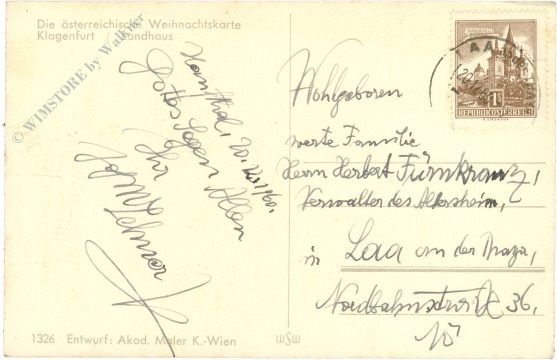 Die österreichische Weihnachtskarte
Klagenfurt / Landhaus
© WIMSTORE by Walkner
20. XII. 60.
Gottes Segen Allen
Ihr
Wohlgeboren
werte Familie
Herrn Herbert Fürnkranz,
Verwalter des Altersheim,
in Laa an der Thaya,
Nordbahnstr 36,
NÖ
LAA
1S
REPUBLIK ÖSTERREICH
1326 Entwurf: Akad. Maler K.-Wien
WSW